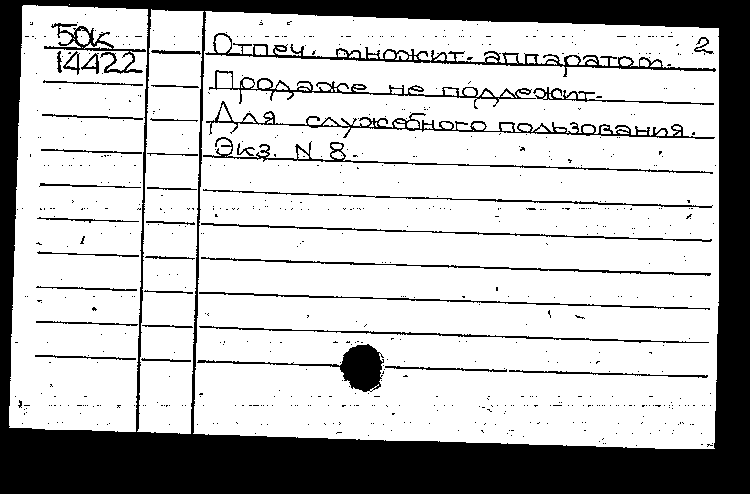 50к
14422
2
Отпеч. множит. аппаратом.
Продаже не подлежит.
Для служебного пользования.
Экз. N 8.